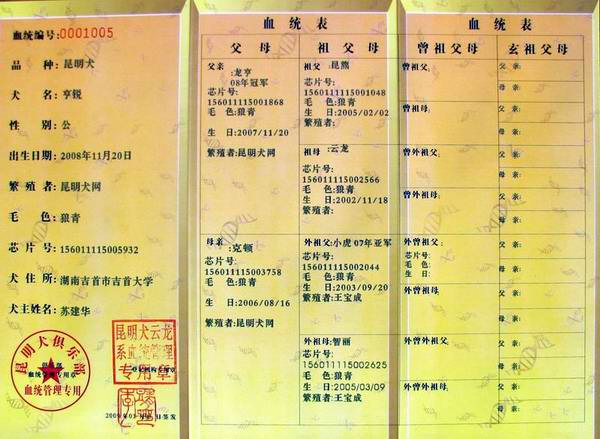 血统编号:0001005
品 种: 昆明犬
犬 名: 亨锐
性 别: 公
出生日期: 2008年11月20日
繁殖者: 昆明犬网
毛 色: 狼青
芯片号: 156011115005932
犬住所: 湖南吉首市吉首大学
犬主姓名: 苏建华
昆明犬俱乐部
血统管理专用章
血统管理专用
昆明犬云龙
系血统管理
专用章
血统表
父母
祖父母
父亲:龙亨
08年冠军
芯片号:
156011115001868
毛 色:狼青
生 日:2007/11/20
繁殖者:昆明犬网
母亲:克顿
芯片号:
156011115003758
毛 色:狼青
生 日:2006/08/16
繁殖者:昆明犬网
祖父:昆熊
芯片号:
156011115001048
毛 色:狼青
生 日:2005/02/02
繁殖者:
祖母:云龙
芯片号:
156011115002566
毛 色:狼青
生 日:2002/11/18
繁殖者:
外祖父:小虎 07年亚军
芯片号:
156011115002044
毛 色:狼青
生 日:2003/09/20
繁殖者:王宝成
外祖母:智丽
芯片号:
156011115002625
毛 色:狼青
生 日:2005/03/09
繁殖者:王宝成
血统表
曾祖父母
玄祖父母
曾祖父:
父亲:
母亲:
曾祖母:
父亲:
母亲:
曾外祖父:
父亲:
母亲:
曾外祖母:
父亲:
母亲:
外曾祖父:
芯片号:
毛 色:
生 日:
父亲:
母亲:
外曾祖母:
父亲:
母亲:
曾外祖父:
父亲:
母亲:
曾外祖母:
父亲:
母亲: